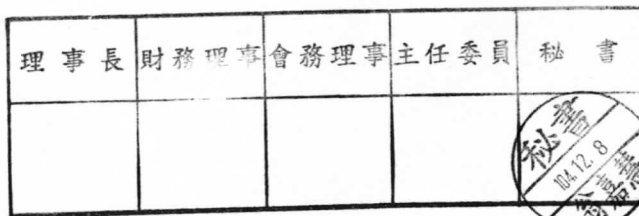 理事長 財務理事 會務理事 主任委員 秘書
秘書
104.12.8